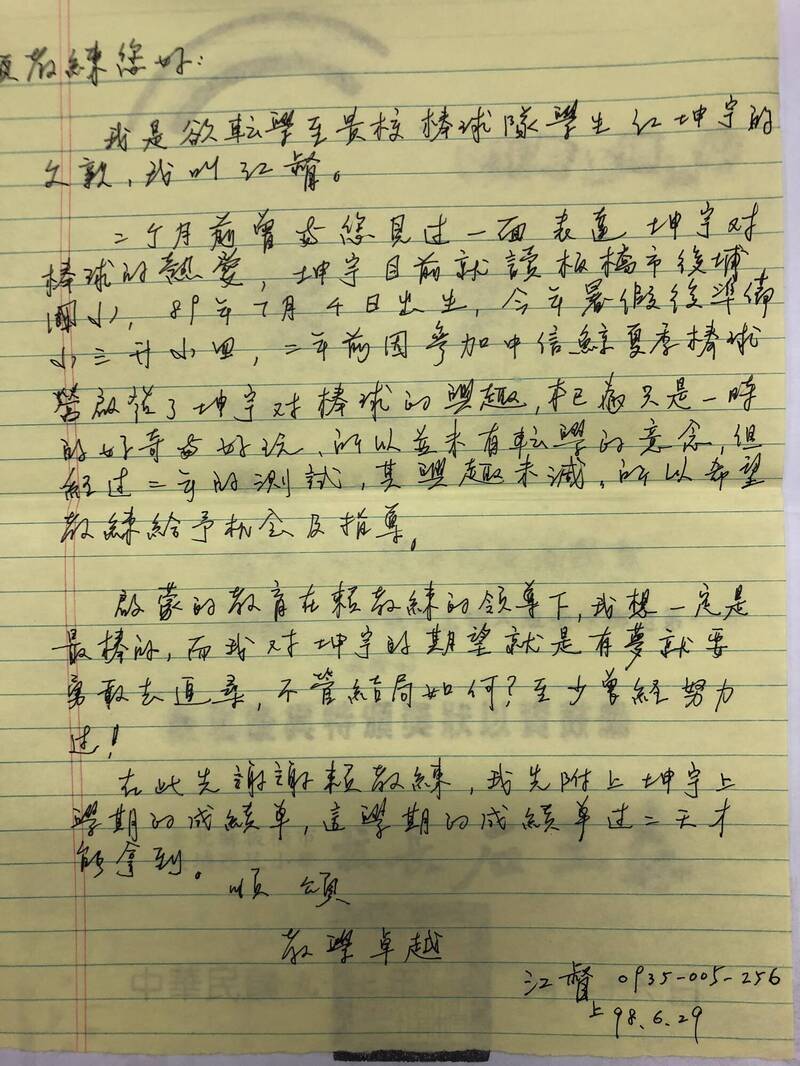 賴教練您好：
我是欲転學至貴校棒球隊學生江坤宇的
父親，我叫江督。
二个月前曾与您見过一面表達坤宇对
棒球的熱愛，坤宇目前就讀板橋市後埔
國小，89年7月4日出生，今年暑假後準備
小三升小四，二年前因參加中信鯨夏季棒球
營啟發了坤宇对棒球的興趣，本已為只是一時
的好奇与好玩、所以並未有転學的意念，但
経过二年的測試，其興趣未減，所以希望
教練給予机会及指導。
啟蒙的教育在賴教練的領導下，我想一定是
最棒的，而我对坤宇的期望就是有夢就要
勇敢去追尋，不管結局如何？至少曾経努力
过！
在此先謝謝賴教練，我先附上坤宇上
學期的成績单，這學期的成績单过二天才
能拿到。
順頌
教學卓越
江督 0935-005-256
上 98.6.29
中華民